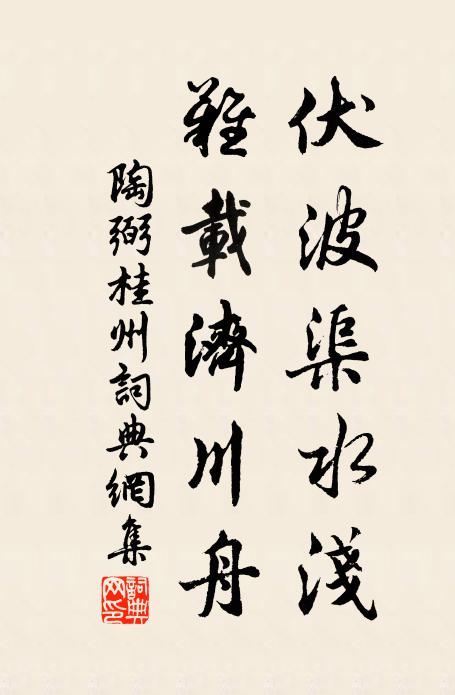 伏波渠水淺
難載濟川舟
陶弼桂州詞典網集
詞典網印